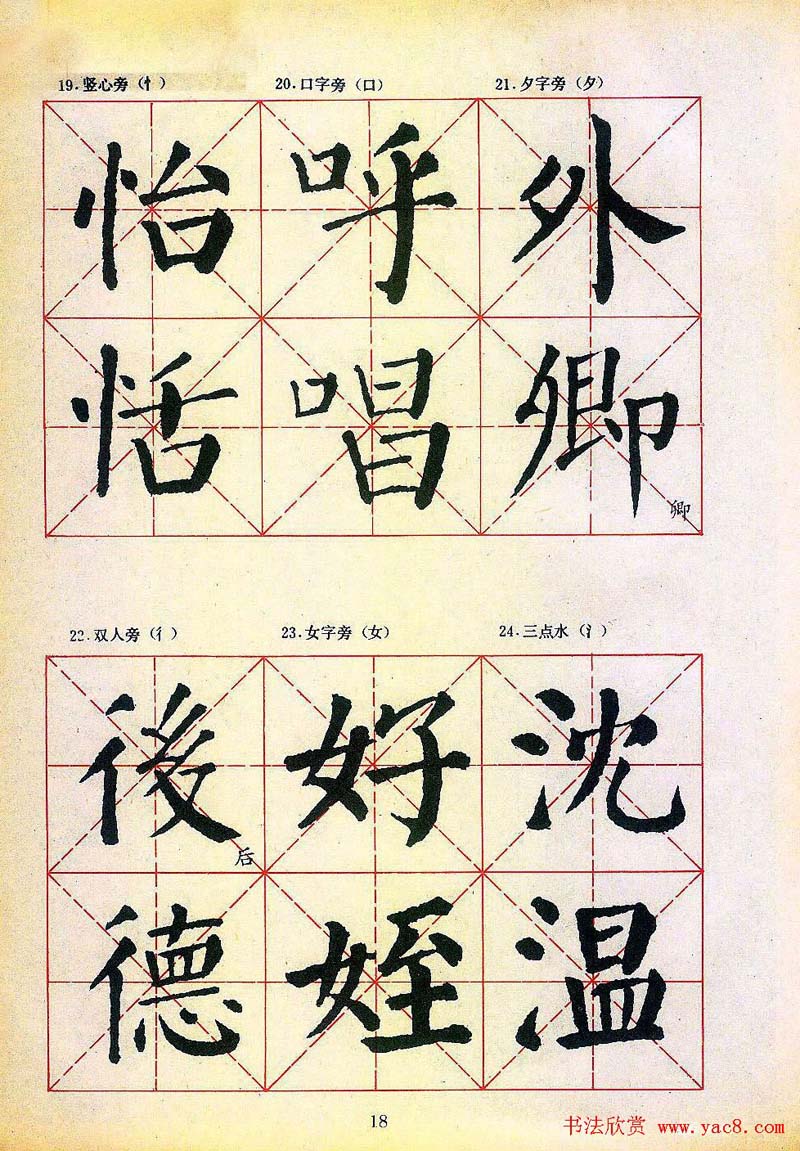 19.竖心旁（忄） 20.口字旁（口） 21.夕字旁（夕）
怡 呼 外
恬 唱 卿
卿
22.双人旁（彳） 23.女字旁（女） 24.三点水（氵）
後 好 沈
后
德 姪 温
18
书法欣赏 www.yac8.com